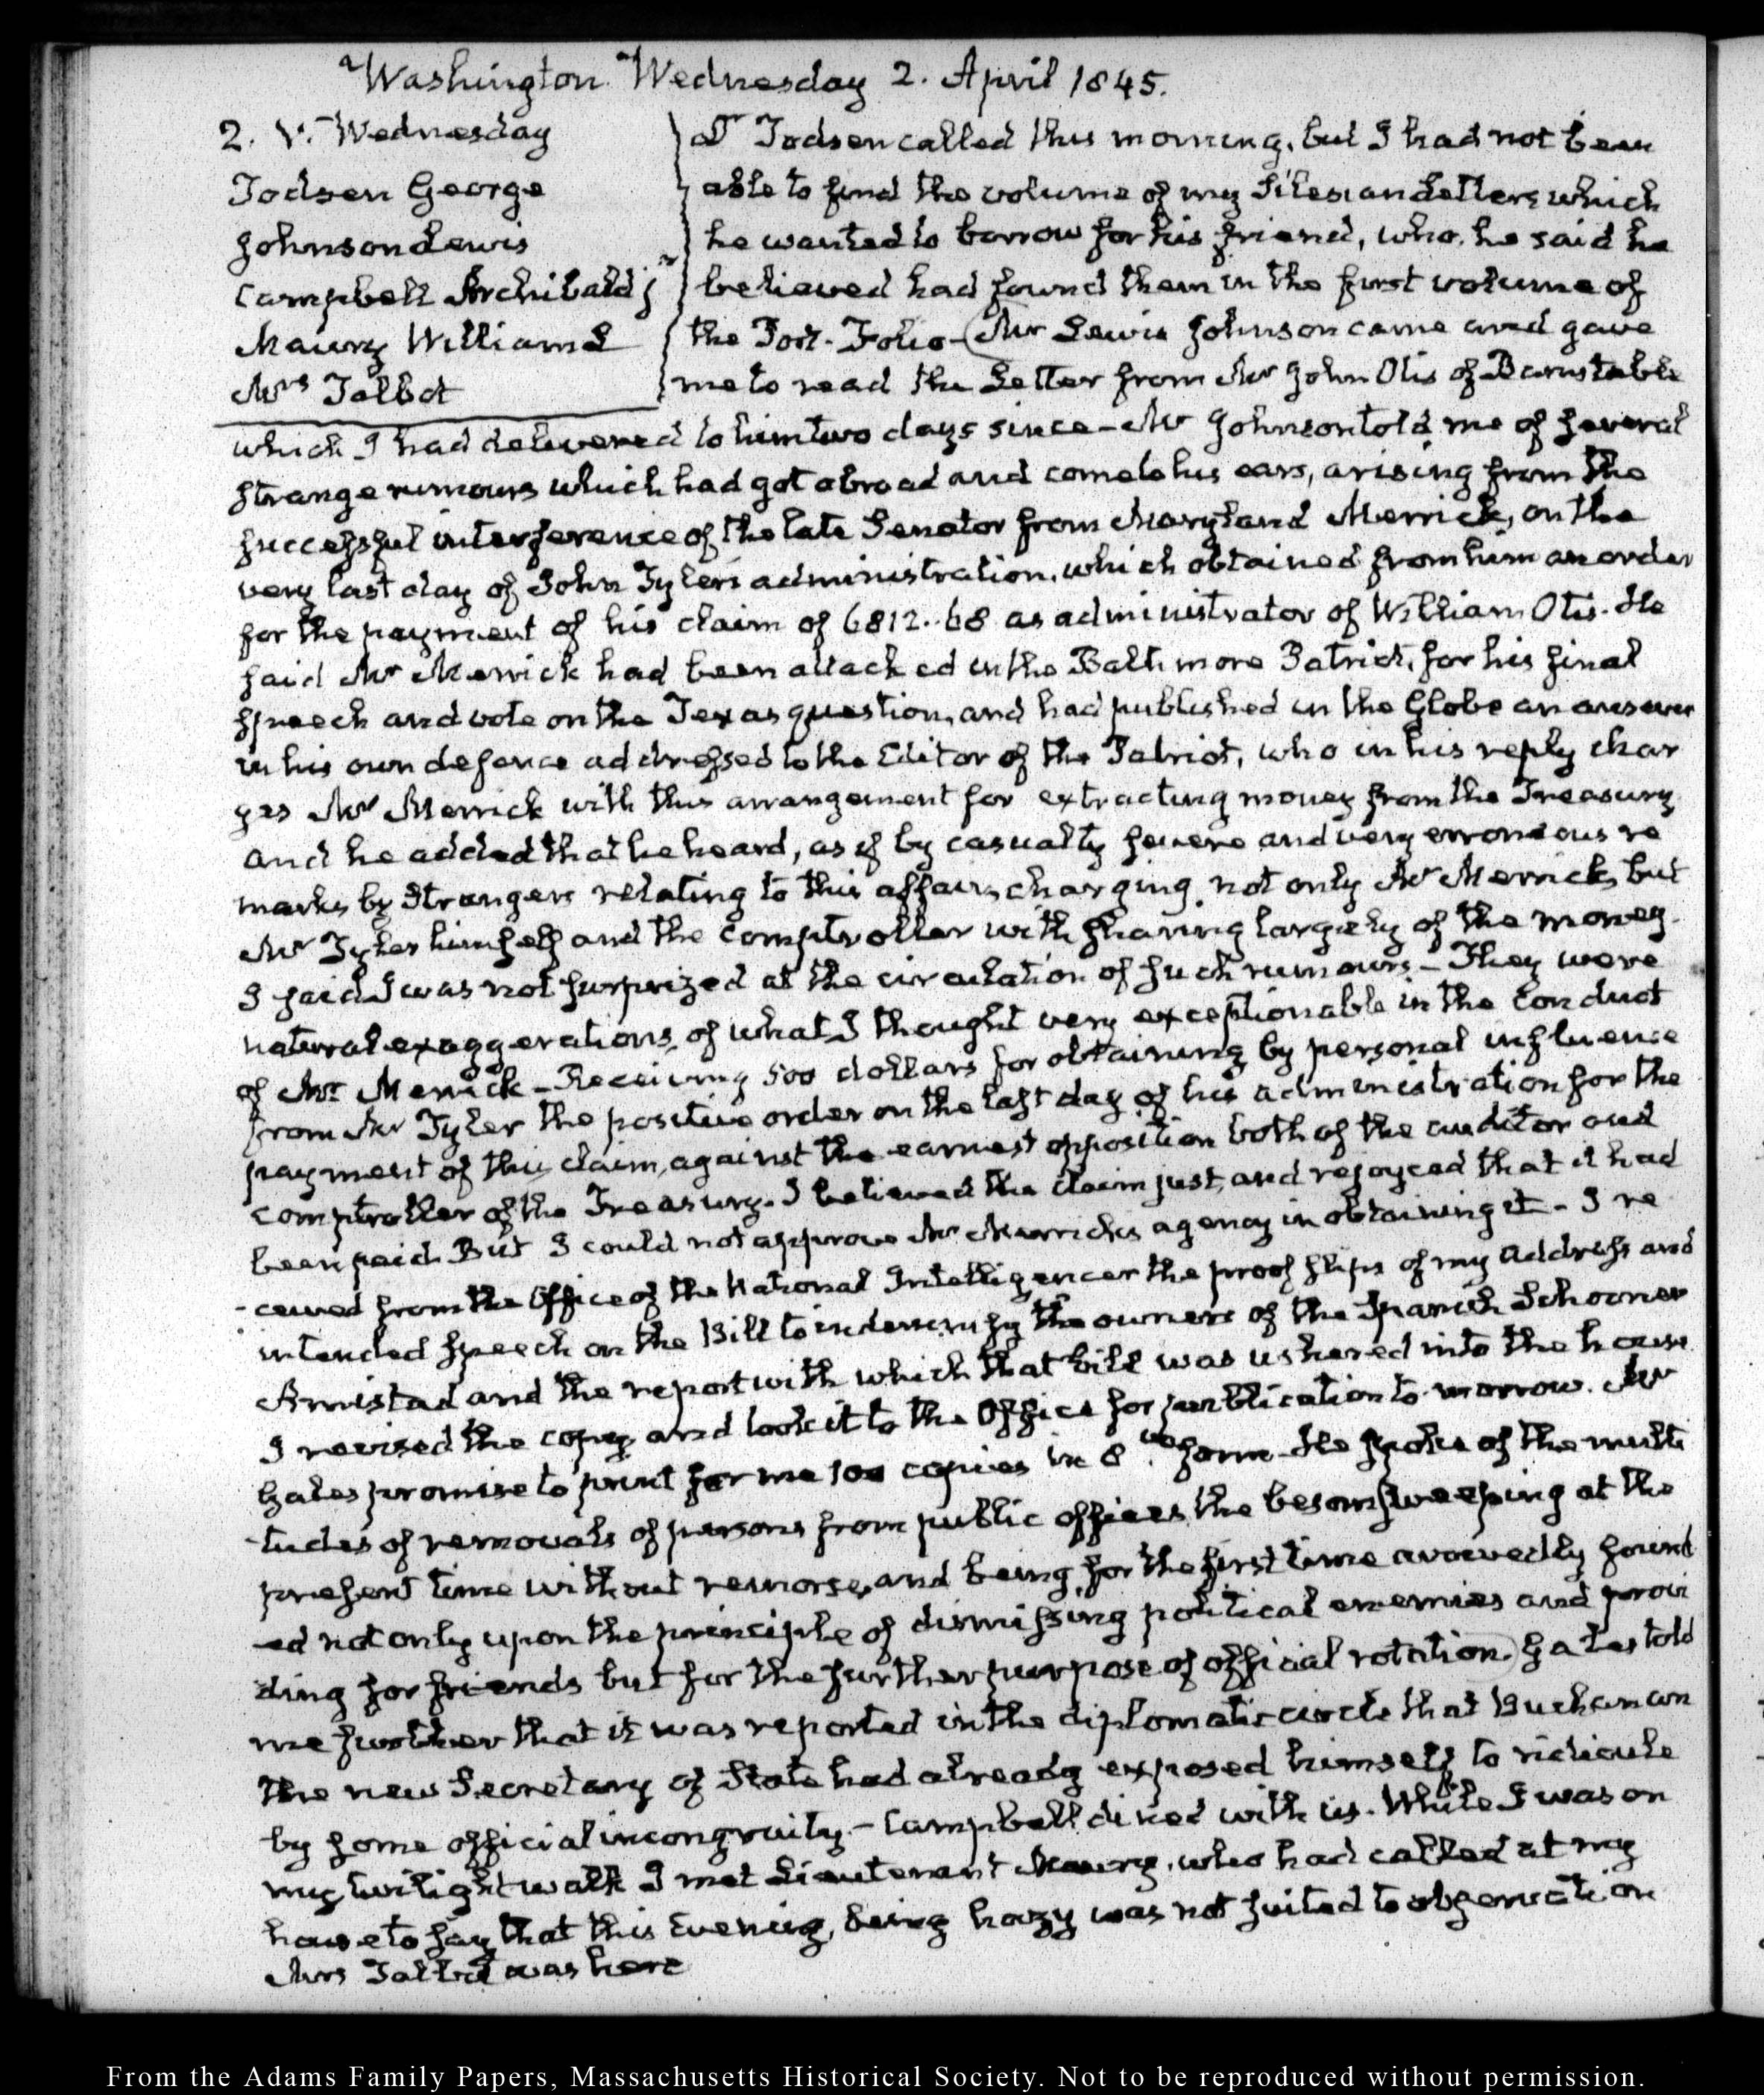 Washington Wednesday 2. April 1845.
2. V. Wednesday
Todsen George
Johnson Lewis
Campbell Archibald jr
Maury William L
Mrs Talbot
Dr Todsen called this morning, but I had not been
able to find the volume of my Silesian Letters which
he wanted to borrow for his friend, who, he said he
believed had found them in the first volume of
the Port-Folio - Mr Lewis Johnson came and gave
me to read the Letter from Mr John Otis of Barnstable
which I had delivered to him two days since - Mr Johnson told me of several
strange rumours which had got abroad and come to his ears, arising from the
successful interference of the late Senator from Maryland Merrick, on the
very last day of John Tyler's administration, which obtained from him an order
for the payment of his claim of 6812..68 as administrator of William Otis. He
said Mr Merrick had been attacked in the Baltimore Patriot, for his final
speech and vote on the Texas question, and had published in the Globe an answer
in his own defence addressed to the Editor of the Patriot, who in his reply char
ges Mr Merrick with this arrangement for extracting money from the Treasury
and he added that he heard, as if by casualty severe and very erroneous re
marks by Strangers relating to this affair, charging not only Mr Merrick, but
Mr Tyler himself and the Comptroller with sharing largely of the money.
I said I was not surprized at the circulation of such rumours - They were
natural exaggerations, of what I thought very exceptionable in the conduct
of Mr Merrick - Receiving 500 dollars for obtaining by personal influence
from Mr Tyler the positive order on the last day of his administration for the
payment of this claim, against the earnest opposition both of the auditor and
comptroller of the Treasury. I believed the claim just, and rejoyced that it had
been paid. But I could not approve Mr Merrick's agency in obtaining it - I re
-ceived from the Office of the National Intelligencer the proof slips of my address and
intended speech on the Bill to indemnify the owners of the Spanish Schooner
Amistad and the report with which that bill was ushered into the house
I revised the copy and took it to the Office for publication to-morrow. Mr
Gales promise to print for me 100 copies in 8vo form - He spoke of the multi
-tudes of removals of persons from public offices, the besom sweeping at the
present time without remorse, and being for the first time avowedly found
-ed not only upon the principle of dismissing political enemies and provi
ding for friends but for the further purpose of official rotation. Gales told
me further that it was reported in the diplomatic circle that Buchanan
the new Secretary of State had already exposed himself to ridicule
by some official incongruity - Campbell dined with us. While I was on
my twilight walk I met Lieutenant Maury, who had called at my
house to say that this Evening, being hazy was not suited to observation
Mrs Talbot was here
From the Adams Family Papers, Massachusetts Historical Society. Not to be reproduced without permission.